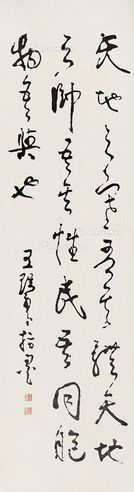 天地之塞吾其體天地
之帥吾其性民吾同胞
物吾與也
王 指墨